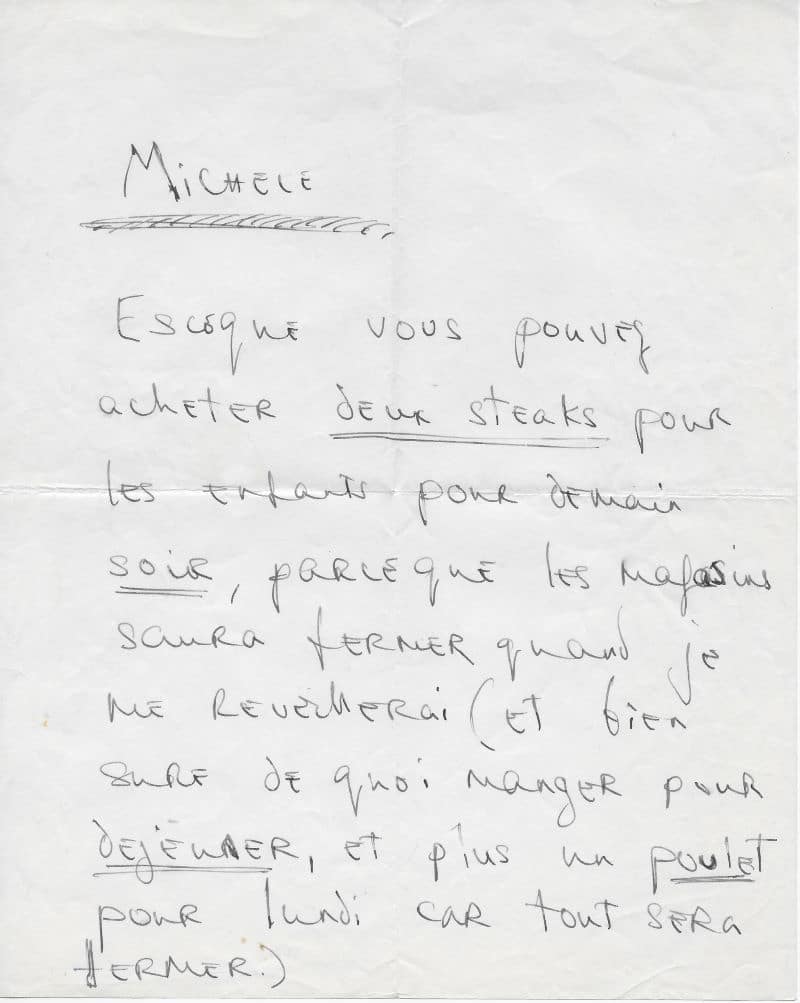 MiCHELE
Esceque vous pouvez
acheter deux steaks pour
les enfants pour demain
soir, parceque les magasins
saura fermer quand je
me reveillerai (et bien
sure de quoi manger pour
dejeuner, et plus un poulet
pour lundi car tout sera
fermer.)